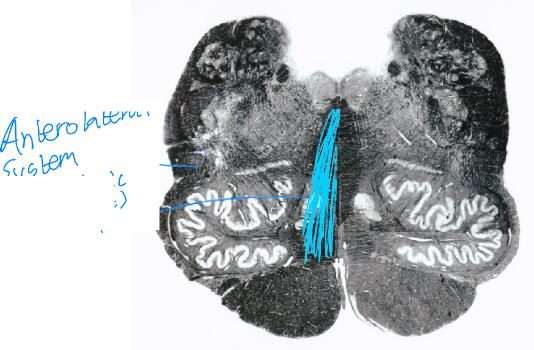 Anterolateral
System
ic